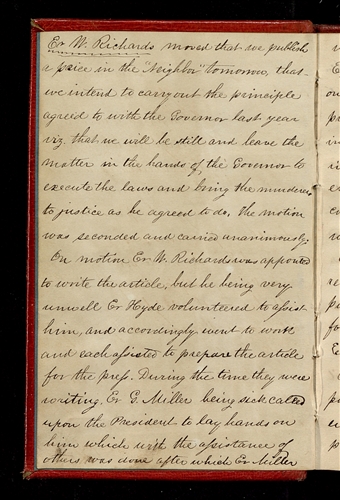 Er W. Richards moved that we publish
a peice in the "Neighbor" tomorrow, that
we intend to carry out the principle
agreed to with the Governor last year
viz. that we will be still and leave the
matter in the hands of the Governor to
execute the laws and bring the murderers
to justice as he agreed to do. The motion
was seconded and carried unanimously.
On motion Er W. Richards was appointed
to write the article, but he being very
unwell Er Hyde volunteered to assist
him, and accordingly went to work
and each assisted to prepare the article
for the press. During the time they were
writing, Er G. Miller being sick called
upon the President to lay hands on
him which with the assistance of
others was done after which Er Miller